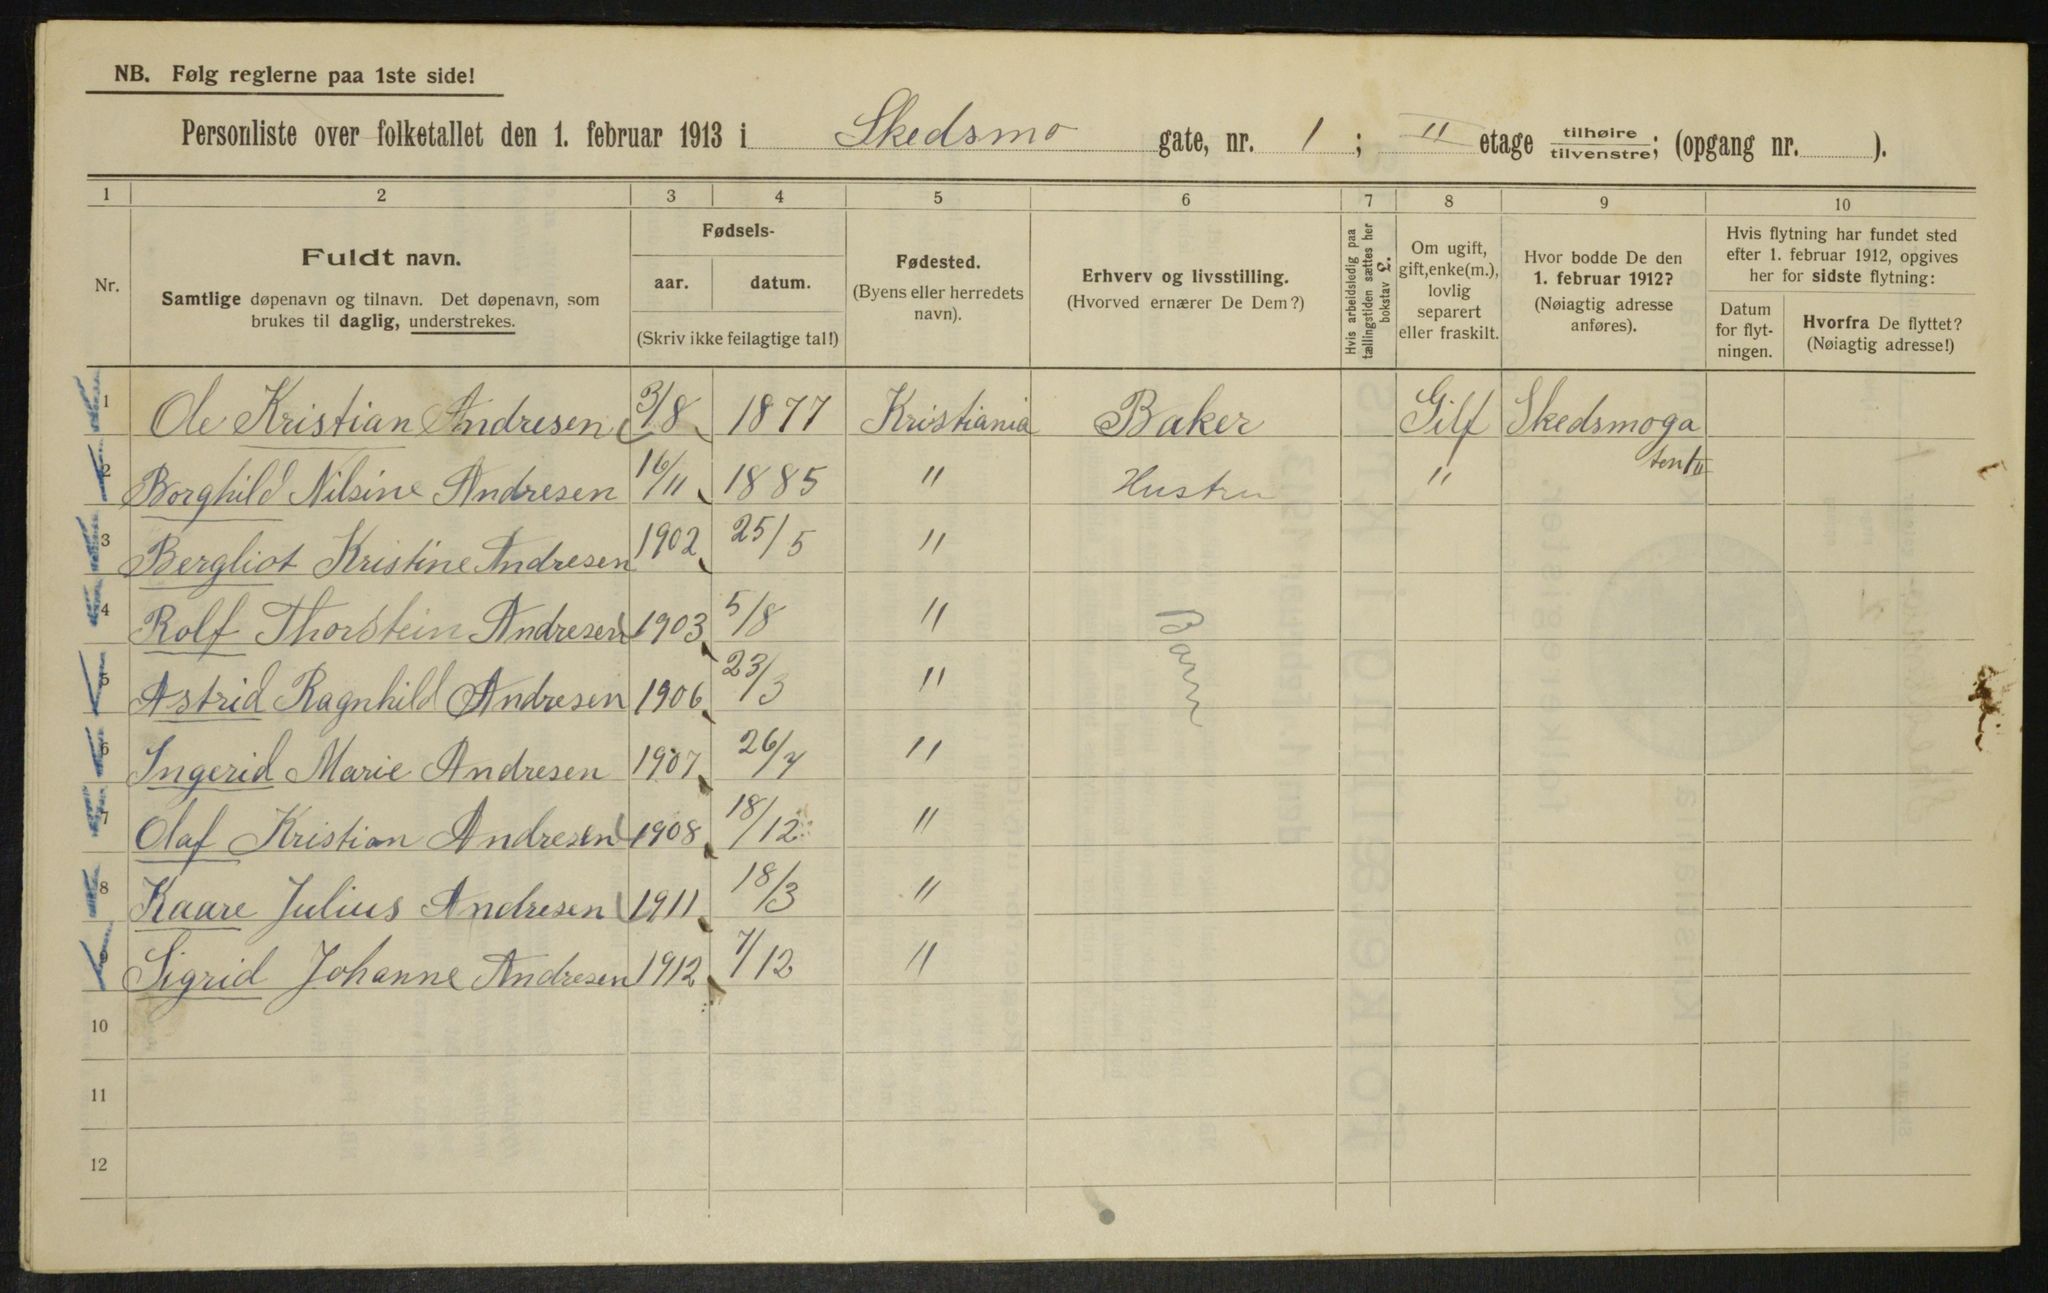 NB. Følg reglerne paa 1ste side!
Personliste over folketallet den 1. februar 1913 i Skedsmo gate, nr. 1 ; II etage tilhøire tilvenstre; (opgang nr. ).
1 2 3 4 5 6 7 8 9 10
Nr.
Fuldt navn.
Samtlige døpenavn og tilnavn. Det døpenavn, som
brukes til daglig, understrekes.
Fødsels-
aar. datum.
(Skriv ikke feilagtige tal!)
Fødested.
(Byens eller herredets
navn).
Erhverv og livsstilling.
(Hvorved ernærer De Dem?)
Hvis arbeidsledig paa
tællingstiden sættes her
bokstav L.
Om ugift,
gift, enke(m.),
lovlig
separert
eller fraskilt.
Hvor bodde De den
1. februar 1912?
(Nøiagtig adresse
anføres).
Hvis flytning har fundet sted
efter 1. februar 1912, opgives
her for sidste flytning:
Datum
for flyt-
ningen.
Hvorfra De flyttet?
(Nøiagtig adresse!)
1 Ole Kristian Andresen 3/8 1877 Kristiania Baker Gift Skedsmoga
ten 1 II
2 Borghild Nilsine Andresen 16/11 1885 " Hustru "
3 Bergliot Kristine Andresen 1902 25/5 "
4 Rolf Thorstein Andresen 1903 5/8 "
Barn
5 Astrid Ragnhild Andresen 1906 23/3 "
6 Ingerid Marie Andresen 1907 26/7 "
7 Olaf Kristian Andresen 1908 18/12 "
8 Kaare Julius Andresen 1911 18/3 "
9 Sigrid Johanne Andresen 1912 7/12 "
10
11
12